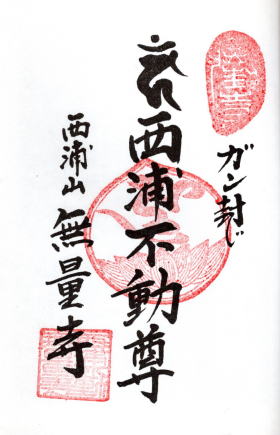 ガン封じ
西浦不動尊
西浦山
無量寺